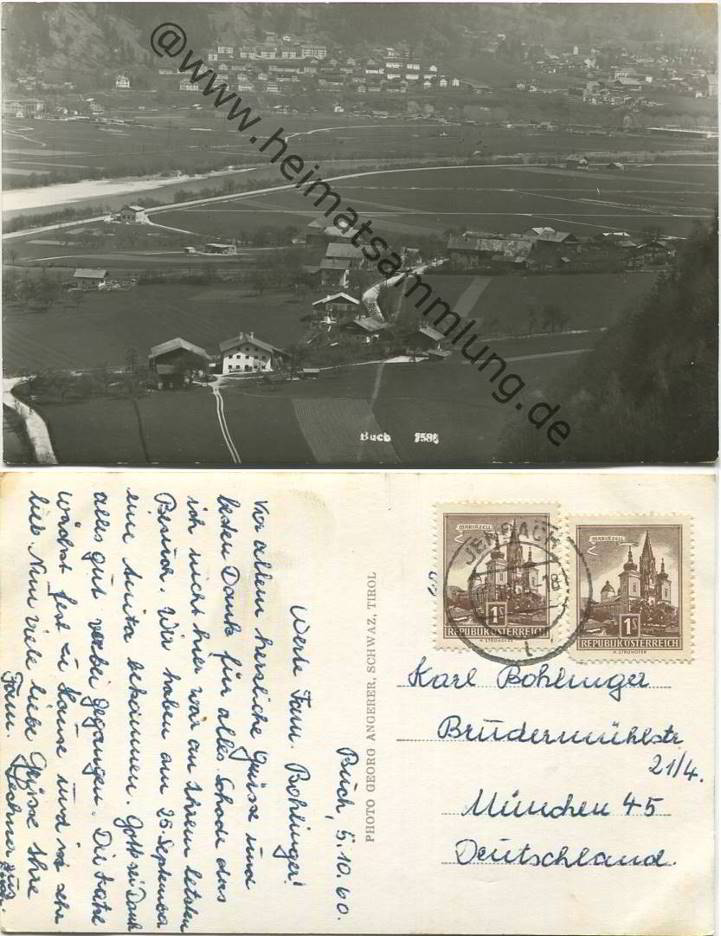 @www.heimatsammlung.de
Buch 7586
Buch, 5.10.60.
Werte Fam. Bohlinger!
Vor allem herzliche Grüsse und
besten Dank für alles. Schade das
ich nicht hier war an Ihrem letzten
Besuch. Wir haben am 25. September
eine Anita bekommen. Gott sei Dank
alles gut vorbei gegangen. Die Kathe
wächst fest zu Hause und ist sehr
lieb. Nun viele liebe Grüsse Ihre
Fam. Lechner aus
PHOTO GEORG ANGERER, SCHWAZ, TIROL
JENBACH
18
MARIAZELL
1S
REPUBLIK ÖSTERREICH
H. STROHOFER
MARIAZELL
1S
REPUBLIK ÖSTERREICH
H. STROHOFER
Karl Bohlinger
Brudermühlstr
21/4.
München 45
Deutschland.